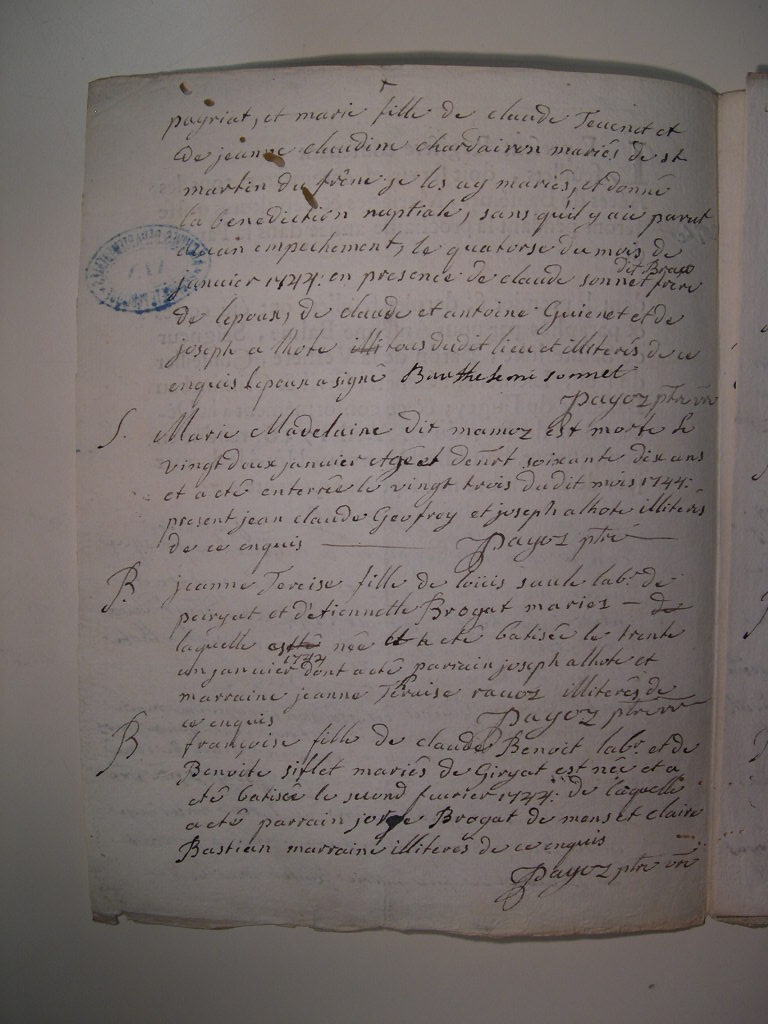 payriat, et marie fille de claude Tevenet et
De jeanne claudine chardairon mariés de st
martin du frêne je les ay mariés, et donné
la benediction nuptiale, sans qu'il y aie parut
aucun empechement, le quatorse du mois de
janvier 1744: en presence de claude sonnet dit Braux frere
de lepoux, de claude et antoine Guienet et de
joseph a lhote tous dudit lieu et illiterés de ce
enquis lepoux a signé Barthelemi sonnet
Payoz ptre vre
S. Marie Madelaine dit mamoz est morte le
vingt deux janvier soixante dix ans
et a été enterrée le vingt trois dudit mois 1744:
present jean claude Geofroy et joseph alhote illiterés
de ce enquis Payoz ptre
B. jeanne Tereise fille de loüis saule labr. de
peiryat et d'etiennette Brogat mariez
laquelle née et a eté batisée le trente
un janvier 1744 dont a eté parrain joseph alhote et
marraine jeanne Teraise ravoz illiterés de
ce enquis Payoz ptre vre
B françoise fille de claude Benoit labr. et de
Benoite siflet mariés de Giryat est née et a
eté batisée le second fevrier 1744: de laquelle
a eté parrain Brogat de mens et claire
Bastian marraine illiterés de ce enquis
Payoz ptre vre